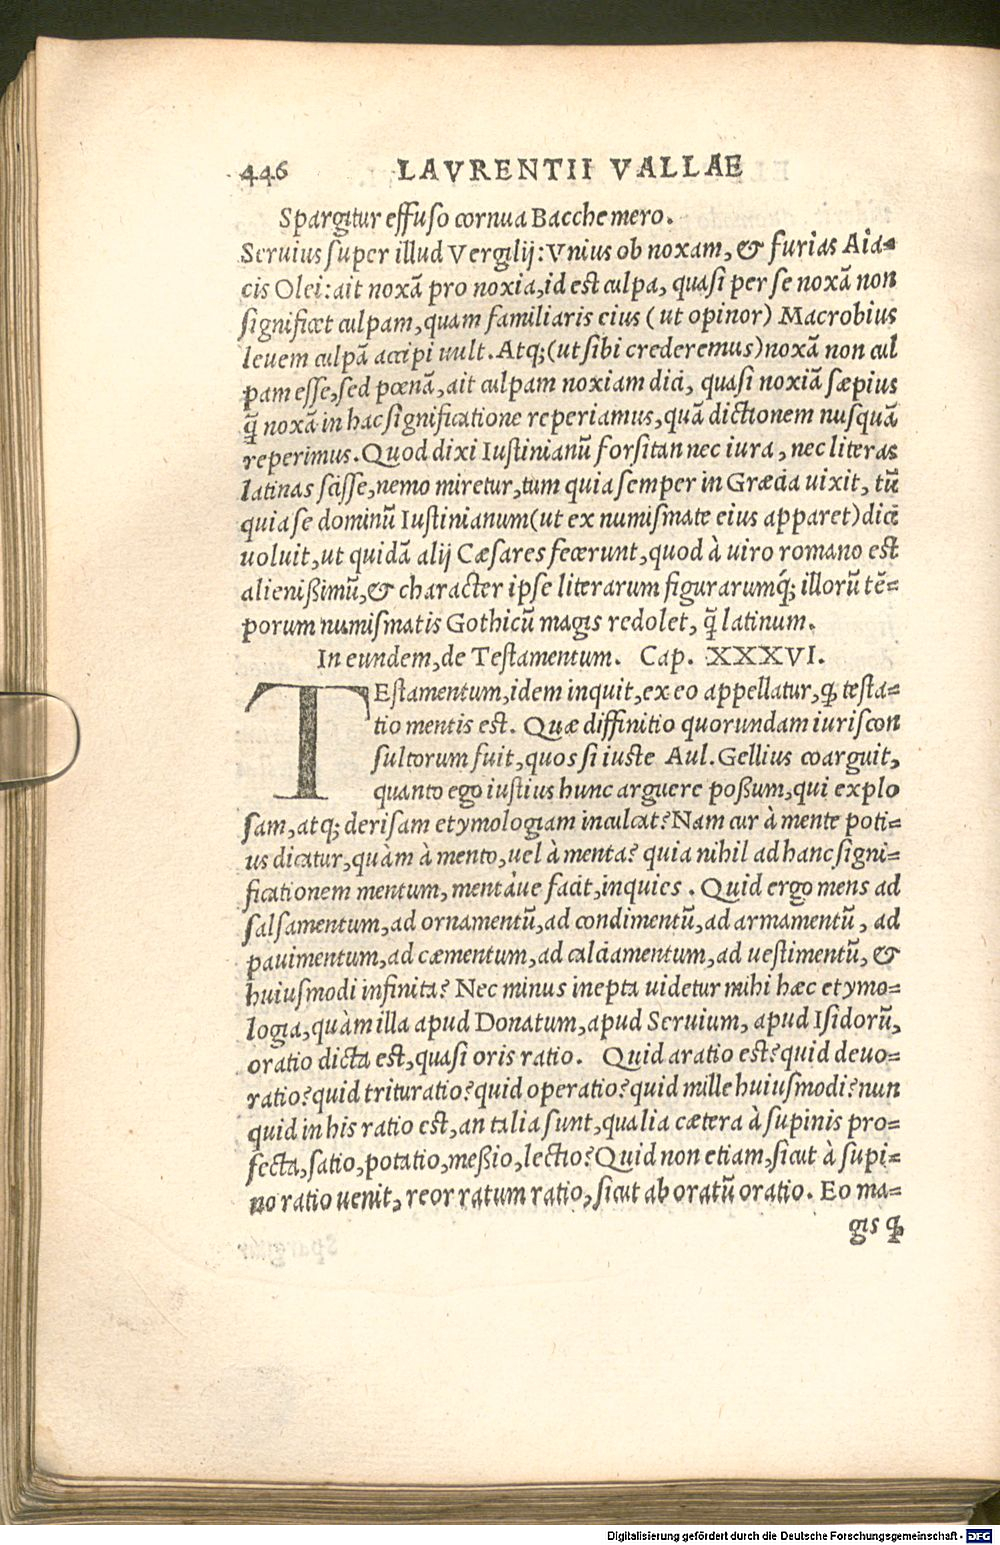 446 LAVRENTII VALLAE
Spargitur effuso cornua Bacche mero.
Seruius super illud Vergilij: Vnius ob noxam, & furias Aia=
cis Olei: ait noxã pro noxia, id est culpa, quasi per se noxã non
significet culpam, quam familiaris eius (ut opinor) Macrobius
leuem culpã accipi uult. Atq; (ut sibi crederemus) noxã non cul
pam esse, sed pœnã, ait culpam noxiam dici, quasi noxiã sæpius
q̃ noxã in hac significatione reperiamus, quã dictionem nusquã
reperimus. Quod dixi Iustinianũ forsitan nec iura, nec literas
latinas scisse, nemo miretur, tum quia semper in Græcia uixit, tũ
quia se dominũ Iustinianum (ut ex numismate eius apparet) dici
uoluit, ut quidã alij Cæsares fecerunt, quod à uiro romano est
alienißimũ, & character ipse literarum figurarumq́; illorũ tẽ=
porum numismatis Gothicũ magis redolet, q̃ latinum.
In eundem, de Testamentum. Cap. XXXVI.
TEstamentum, idem inquit, ex eo appellatur, ꝙ testa=
tio mentis est. Quæ diffinitio quorundam iuriscon
sultorum fuit, quos si iuste Aul. Gellius coarguit,
quanto ego iustius hunc arguere poßum, qui explo
sam, atq; derisam etymologiam inculcat? Nam cur à mente poti=
us dicatur, quàm à mento, uel à menta? quia nihil ad hanc signi=
ficationem mentum, mentáue facit, inquies. Quid ergo mens ad
salsamentum, ad ornamentũ, ad condimentũ, ad armamentũ, ad
pauimentum, ad cæmentum, ad calciamentum, ad uestimentũ, &
huiusmodi infinita? Nec minus inepta uidetur mihi hæc etymo=
logia, quàm illa apud Donatum, apud Seruium, apud Isidorũ,
oratio dicta est, quasi oris ratio. Quid aratio est? quid deuo=
ratio? quid trituratio? quid operatio? quid mille huiusmodi? nun
quid in his ratio est, an talia sunt, qualia cætera à supinis pro=
fecta, satio, potatio, meßio, lectio? Quid non etiam, sicut à supi=
no ratio uenit, reor ratum ratio, sicut ab oratũ oratio. Eo ma=
gis ꝙ
Digitalisierung gefördert durch die Deutsche Forschungsgemeinschaft - DFG